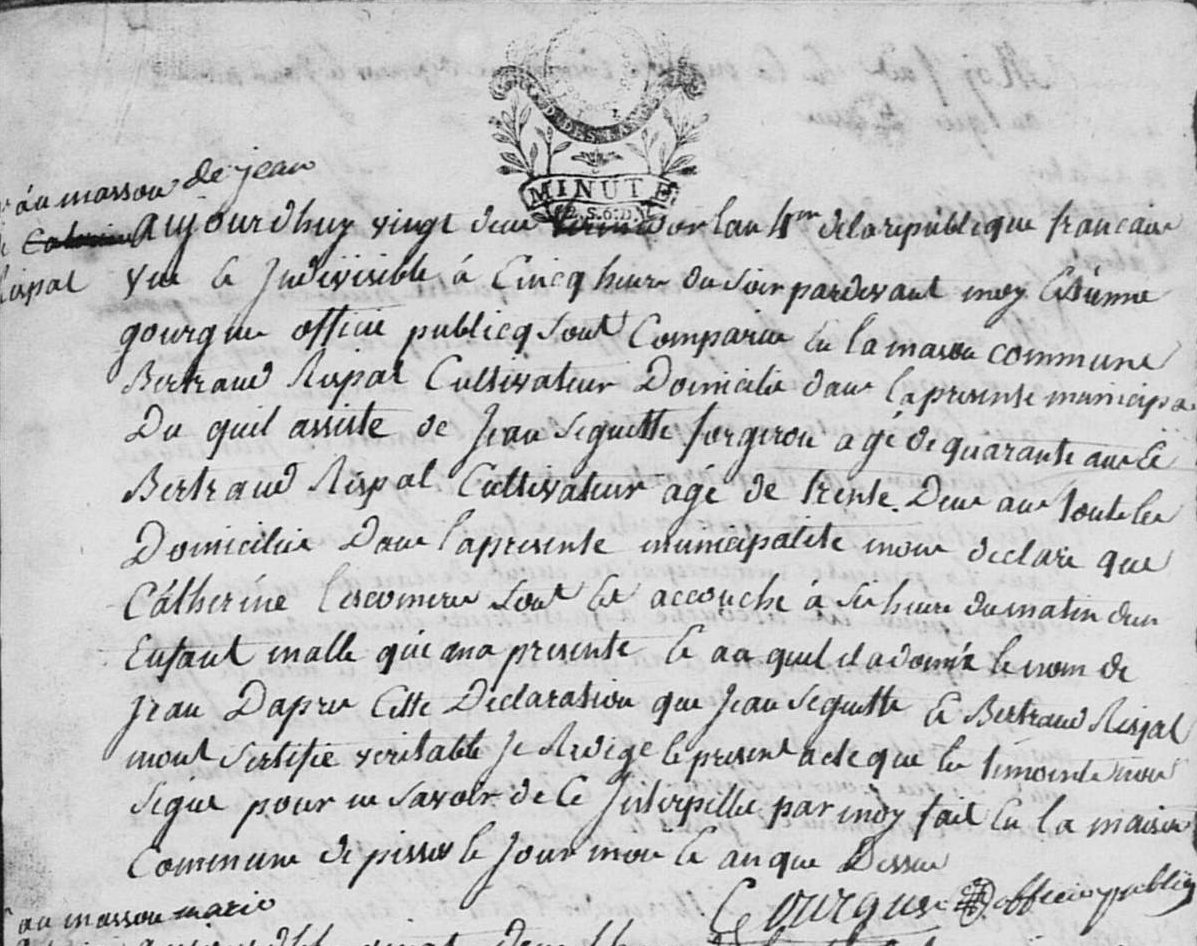 MINUTE
au masson de jean
Rispal
aujourdhuy vingt deux lan 4me delarepublique francaise
vne & Indivisible á Cincq heure du soir pardevant moy Estienne
gourgue officié publicq sont Comparue En la maison commune
Bertrand Rispal Cultivateur Domicilié dans lapresente municipa
Du quil assiste de Jean Seguette forgeron agé de quarante ans &
Bertrand Rispal Cultivateur agé de trente Deux ans toutes les
Domicilié Dans lapresente municipalité mont declaré que
Cátherine sont Est accouché á six heure dumatin dun
Enfant malle qui ma presenté & aa quel il adonné le nom de
Jean Dapres Cette Declaration que Jean Seguette & Bertrand Rispal
mont sertifié veritable Je Redigé le present acte que les temoint nont
signé pour ne savoir de Ce Interpellée par moy fait En la maison
Commune de pissos le Jour mois & an que Dessus
Gourgue officié publicq
au masson marie